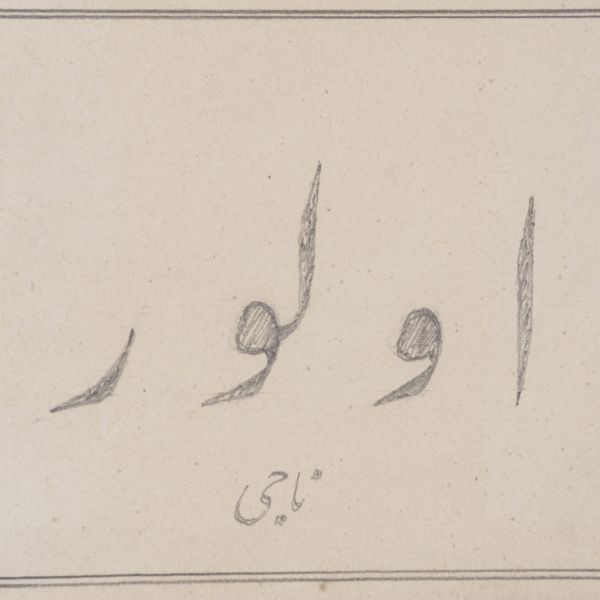 اولور
ناجی